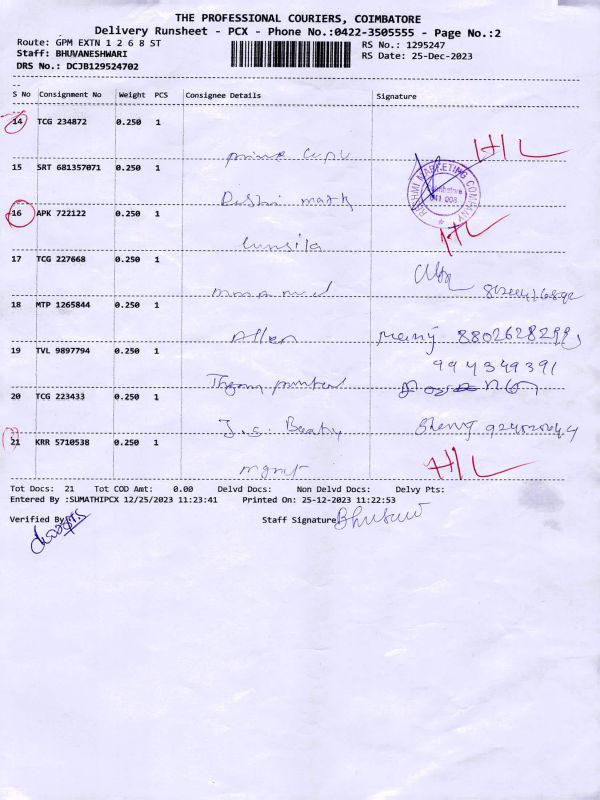 THE PROFESSIONAL COURIERS, COIMBATORE
Delivery Runsheet - PCX - Phone No.:0422-3505555 - Page No.:2
Route: GPM EXTN 1 2 6 8 ST
RS No.: 1295247
Staff: BHUVANESHWARI
RS Date: 25-Dec-2023
DRS No.: DCJB129524702
S No Consignment No Weight PCS Consignee Details Signature
14 TCG 234872 0.250 1
H/L
15 SRT 681357071 0.250 1
Rishi mark
RASHMI MARKETING COMPANY
16 APK 722122 0.250 1
H/L
17 TCG 227668 0.250 1
18 MTP 1265844 0.250 1
Allen
19 TVL 9897794 0.250 1
994349391
20 TCG 223433 0.250 1
J.S. Beauty
21 KRR 5710538 0.250 1
mgmt H/L
Tot Docs: 21 Tot COD Amt: 0.00 Delvd Docs: Non Delvd Docs: Delvy Pts:
Entered By :SUMATHIPCX 12/25/2023 11:23:41 Printed On: 25-12-2023 11:22:53
Verified By
Staff Signature